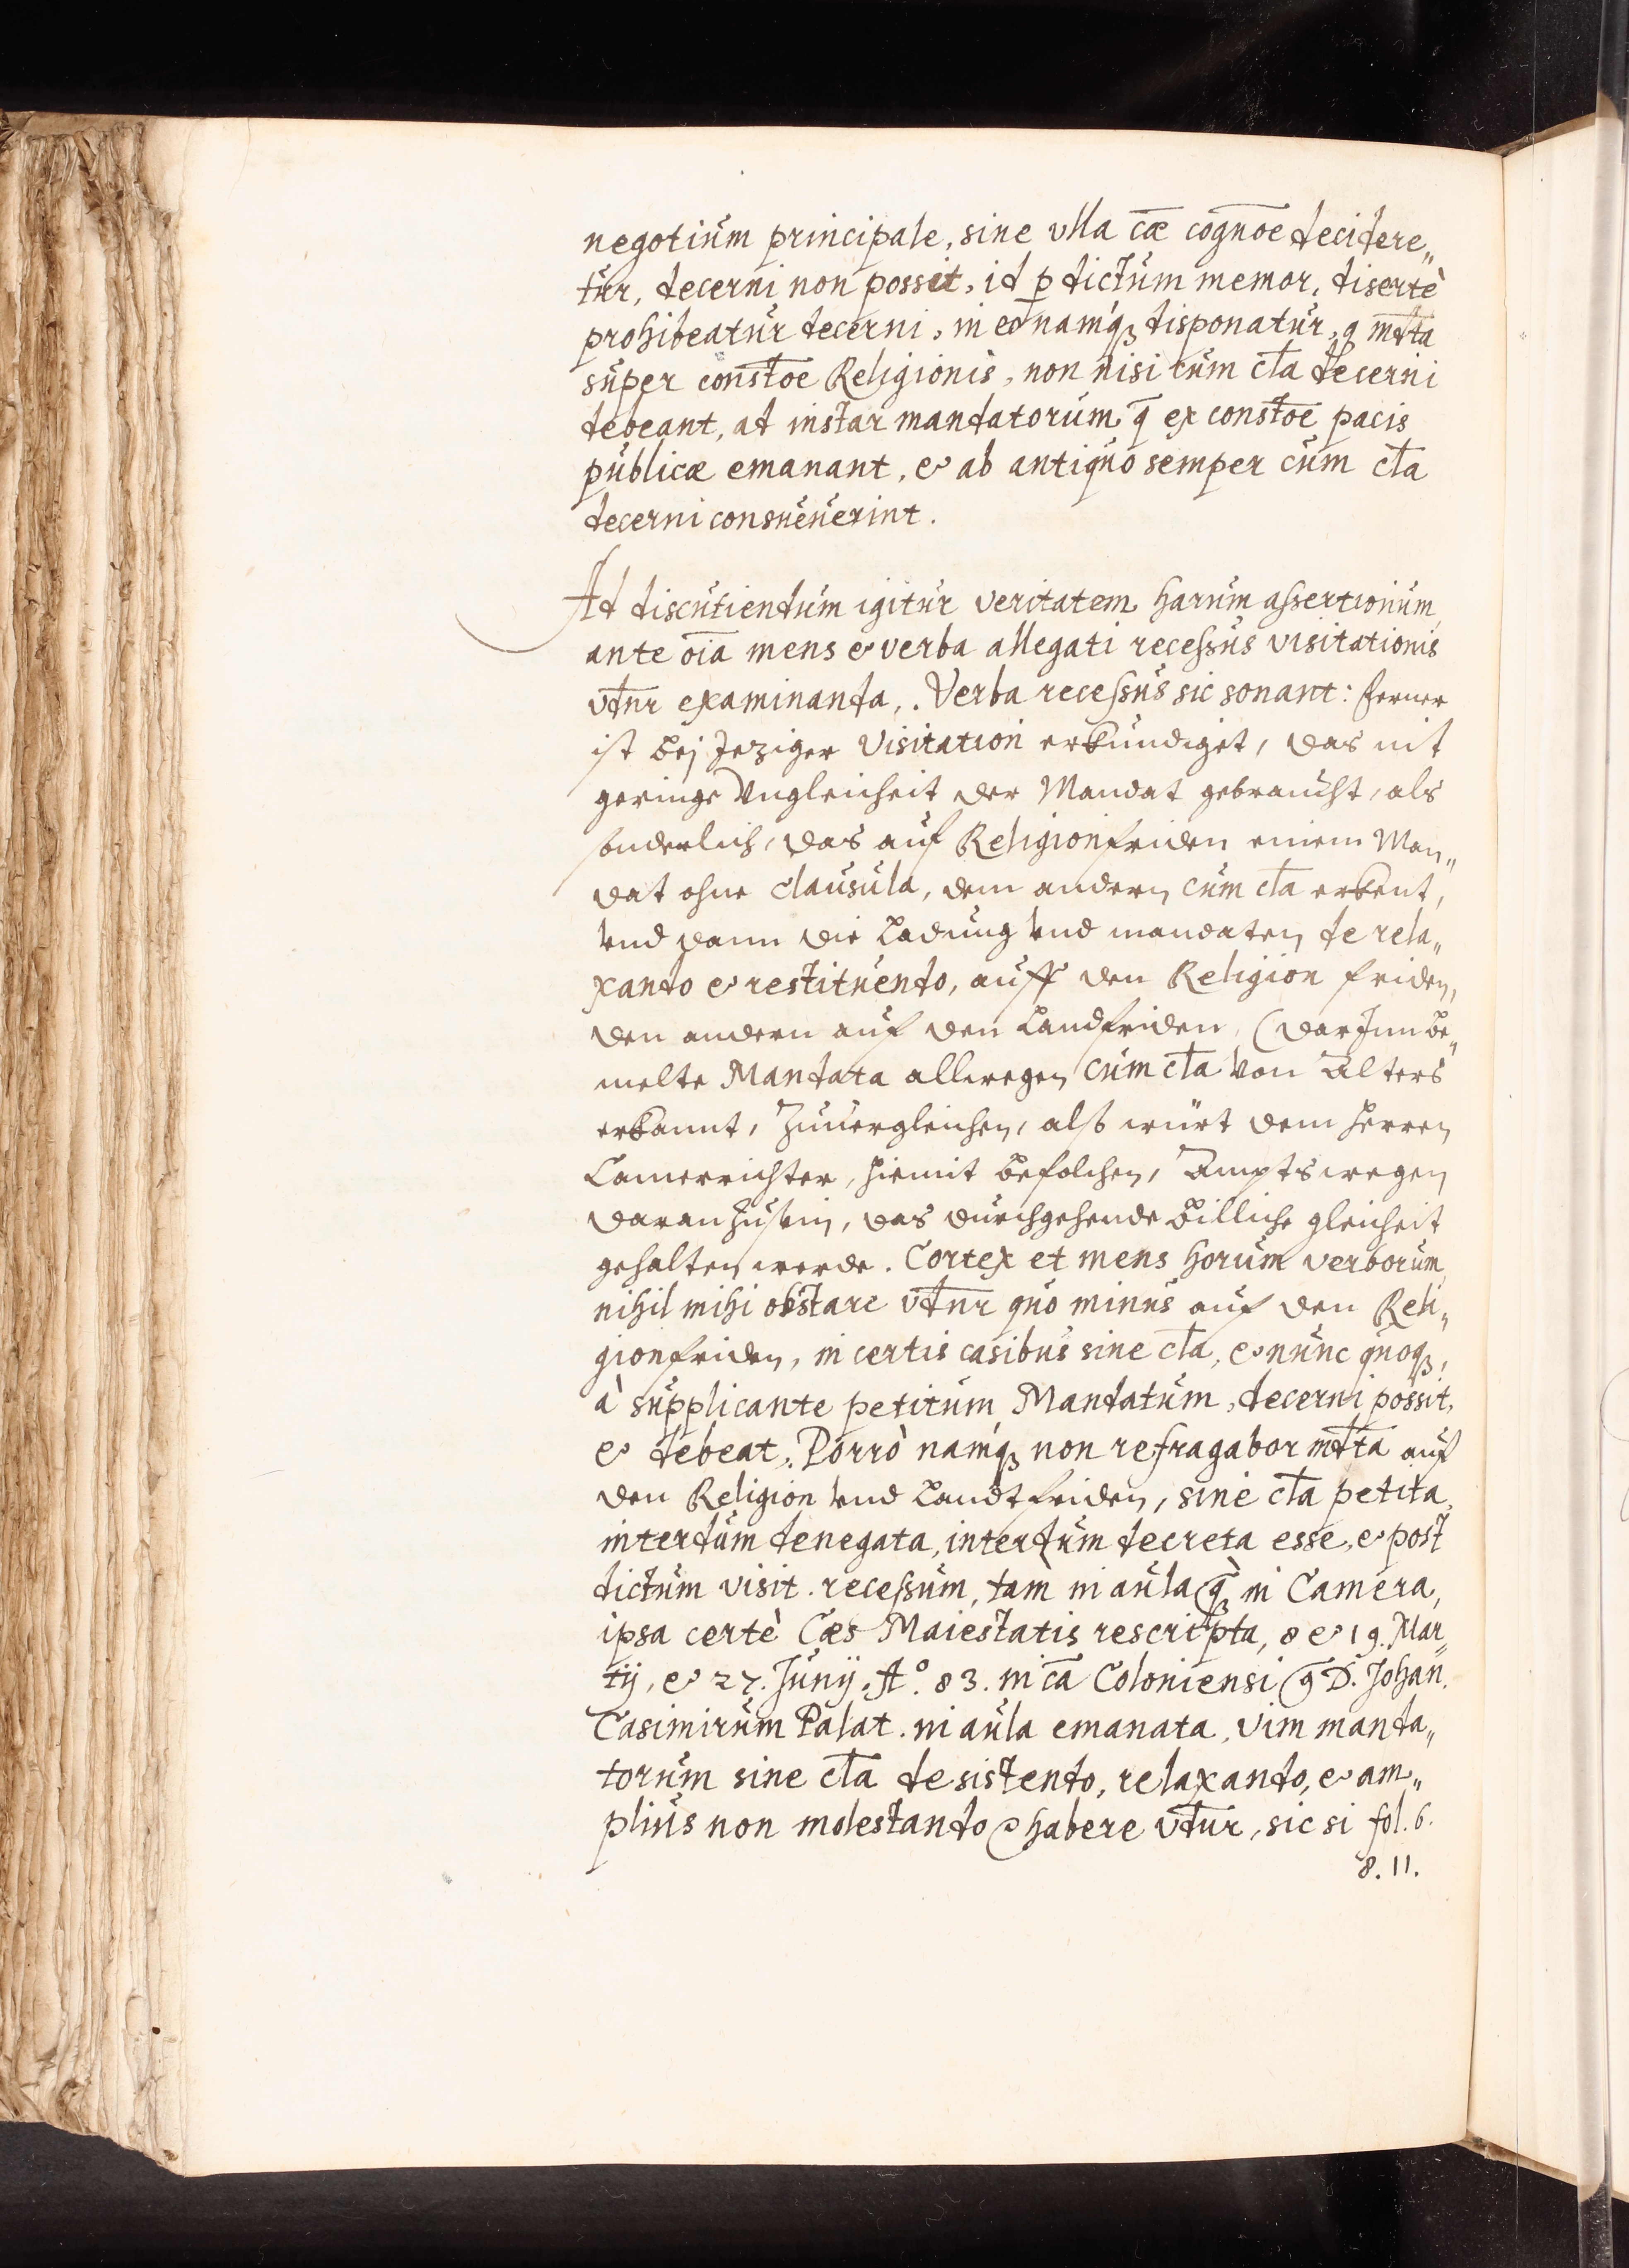 negotium principale, sine vlla cæ cognoe decidere„
tur, decerni non possit, id p dictum memor. disertè
prohibeatur decerni, in eo namq; disponatur, q mdta
super constoe Religionis, non nisi cum cla decerni
debeant, ad instar mandatorum q̄ ex constoe pacis
publicæ emanant, & ab antiquo semper cum cla
decerni consueuerint.
Ad discutiendum igitur veritatem harum assertionum,
ante oīa mens & verba allegati recessus visitationis
vdnr examinanda,. Verba recessus sic sonant: Ferner
ist bej Jeziger Visitation erkündiget, das nit
geringe Vngleicheit der Mandat gebraucht, als
sonderlich, das auf Religionfriden einem Man„
dat ohne clausula, dem andern cum cla erkent,
vnd dann die Ladung vnd mandaten de rela„
xando & restituendo, auff den Religion friden,
den andern auf den Landfriden, (darJnn be„
melte Mandata allwegen cum cla von Alters
erkannt, Zuuergleichen, alß würt dem Herren
Camerrichter, hiemit befolchen, Ampts wegen
daran zusein, das durchgehende billiche gleicheit
gehalten werde. Cortex et mens horum verborum,
nihil mihi obstare vdnr quo minus auf den Reli„
gionfriden, in certis casibus sine cla, & nunc quoq;,
à supplicante petitum Mandatum, decerni possit,
& debeat,. Porrò namq; non refragabor mdta auf
den Religion vnd Landtfriden, sine cla petita,
interdum denegata, interdum decreta esse, & post
dictum visit. recessum, tam in aula q̄ in Camera,
ipsa certè Cæs Maiestatis rescripta, 8 & 19. Mar„
tij, & 27. Junij. Aº. 83. in cā Coloniensi 9 D. Johan.
Casimirum Palat. in aula emanata, vim manda„
torum sine cla desistendo, relaxando, & am„
plius non molestando habere vdtur, sic si fol. 6.
8. 11.